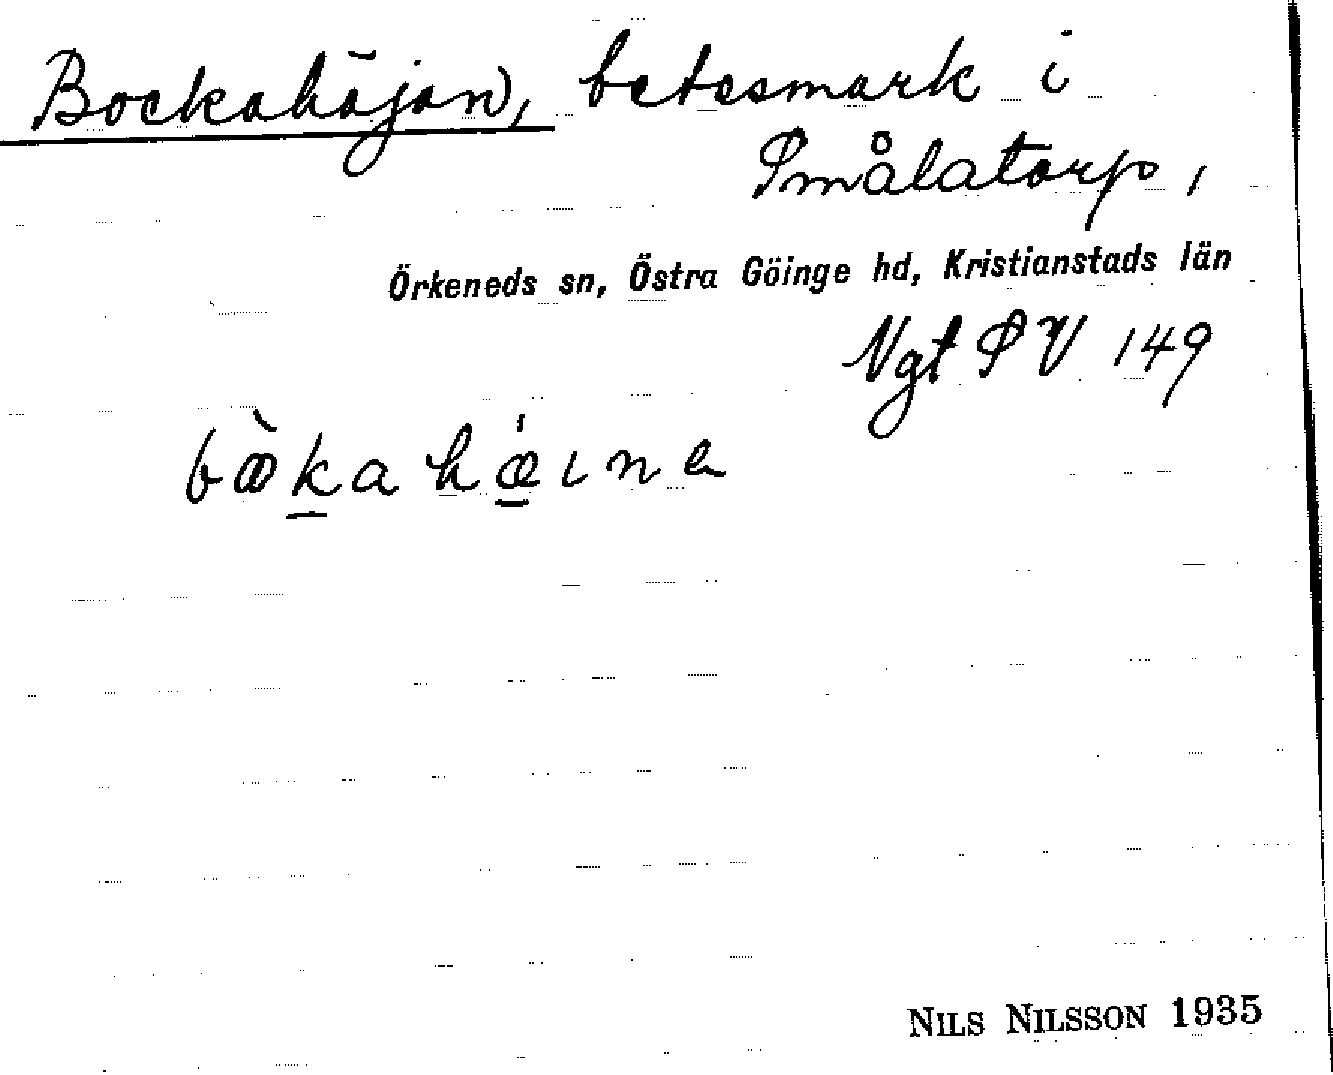 Bockahöjan, betesmark i
Smålatorp,
Örkeneds sn, Östra Göinge hd, Kristianstads län
Vgt SV 149
bɵ̀kahǿına
NILS NILSSON 1935